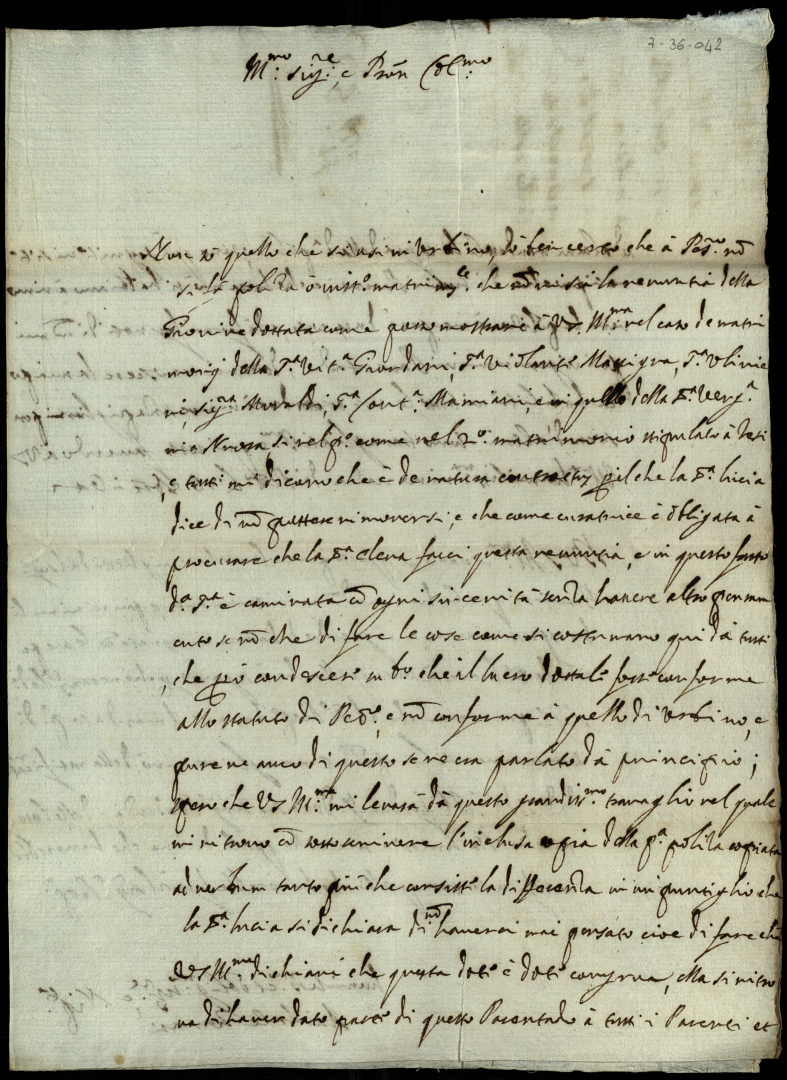 7-36-042
M.mo Sig.re, e Pron Col.mo
Non sò quello che si usi in Urbino, sò ben certo che à Pes.ro nō
si fà polizza ò inst.o matrim.le che nō vi sia la renuntia della
Giovine dottata come posso mostrare à VS. M.ma nel caso de matri
monij della S.a Vit.a Giordani, S.a Violante Mazigna, S.a Ulivie
ri, Sig.ra Moraldi, S.a Cont.a Mamiani, e in quello della S.a Verg.a
mia Nuora, si nel p.o come nel 2.o matrimonio stipulato à Iesi
, e tutti mi dicono che è de natura contractus, p il che la S.a Lucia
dice di nō puotersi rimoversi, e che come curatrice è obligata à
procurare che la S.a Elena facci questa renuntia, e in questo fatto
d.a S.a è caminata cō ogni sincerità senza havere altro pensam
ento se nō che di fare le cose come si costumano qui dà tutti
, che però condescese sub.o che il lucro dottale fosse conforme
allo statuto di Pes.ro, e nō conforme à quello di Urbino, e
pure ne anco di questo se ne era parlato dà principio;
spero che VS M.ma mi levarà dà questo grandiss.mo travaglio nel quale
mi ritrovo cō sottoscrivere l'inclusa copia della p.a polizza copiata
ad verbum tanto più che consiste la differenza in un puntiglio che
la S.a Lucia si dichiara di nō haverci mai pensato cioè di fare che
VS M.ma dichiari che questa dote è dote congrua, ella si ritro
va di haver dato parte di questo Parentado à tutti i Parenti et